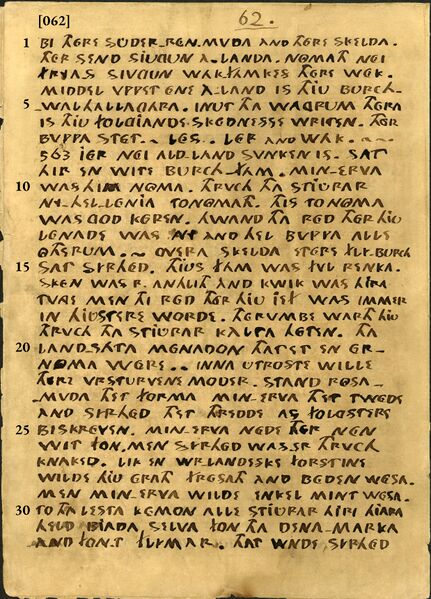 [062]
62.
BI THERE SUDER-REN.MVDA AND THERE SKELDA.
THER SEND SIVGUN A.LANDA. NOMATH NEI
FRYAS SIVGUN WAKFAMKES THERE WEK.
MIDDEL VPPET ENE A-LAND IS THIU BURCH-
5 WALHALLAGARA. INUT THA WAGRUM THERA
IS THIU FOLGIANDE SKEDNESSE WRITEN. THER
BUPPA STET. ~ LES.. LER AND WAK. ~ ~
563 IER NEI ALD-LAND SUNKEN IS. SAT
HIR EN WISE BURCH-FAM. MIN-ERVA
10 WAS HIRA NOMA. THRUCH THA STIURAR
NY-HEL-LENIA TONOMATH. THIS TONOMA
WAS GOD KEREN. HWAND THA RED THER HIU
LENADE WAS NY AND HEL BUPPA ALLE
OTHERUM. ~ OVERA SKELDA ET THERE FLY-BURCH
15 SAT SYRHED. THIUS FAM WAS FUL RENKA.
SKEN WAS R. ANHLITH AND KWIK WAS HIRA
TVNGE MEN THI RED THER HIU IEF WAS IMMER
IN THIUSTERE WORDE. THERUMBE WARTH HIU
THRUCH THA STIURAR KALTA HETEN. THA
20 LAND-SATA MENADON THATET EN ER-
NOMA WERE.. INNA UTROSTE WILLE
THERE VRSTURVENE MODER. STAND ROSA-
MUDA THET FORMA MIN-ERVA THET TWEDE
AND SYRHED THET THREDDE AS FOLGSTERE
25 BISKREVEN. MIN-ERVA NEDE THER NEN
WIT FON. MEN SYRHED WAS.ER THRUCH
KNAKED. LIK EN WR-LANDESKE FORSTINE
WILDE HIU ERATH FRESATH AND BEDEN WESA.
MEN MIN-ERVA WILDE ENKEL MINT WESA.
30 TO THA LESTA KEMON ALLE STIURAR HIRI HIARA
HELD BIADA, SELVA FON THA DENA-MARKA
AND FON.T FLYMAR. THAT WNDE SYRHED